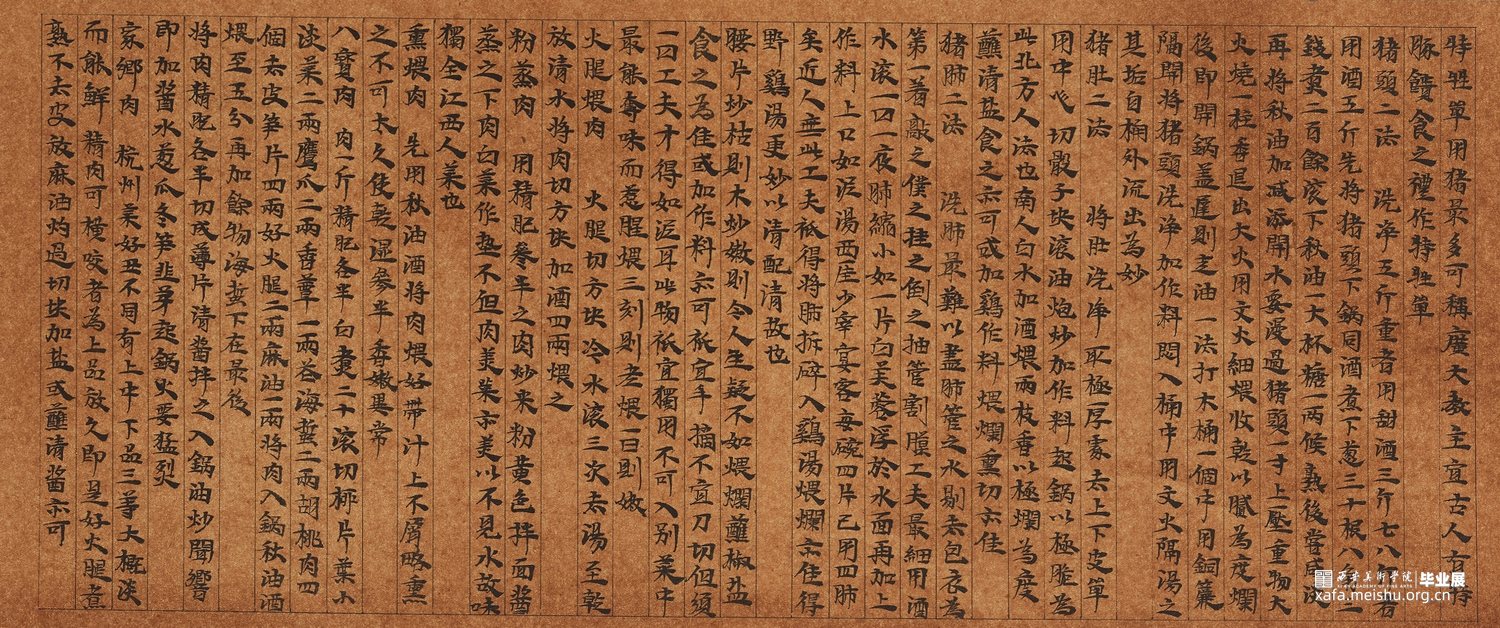 特牲單用猪最多可稱廣大教主宜古人有特
豚饋食之禮作特牲單
猪頭二法 洗淨五斤重者用甜酒三斤七八斤者
用酒五斤先將猪頭下鍋同酒煮下葱三十根八角三
錢煮二百餘滚下秋油一大杯糖一兩候熟後嘗鹹淡
再將秋油加减添開水要漫過猪頭一寸上壓重物大
火燒一柱香退出大火用文火細煨收乾以膩為度爛
後即開鍋盖遲則走油一法打木桶一個中用銅簾
隔開將猪頭洗净加作料悶入桶中用文火隔湯之
其垢自桶外流出為妙
猪肚二法 將肚洗净取極厚處去上下皮單
用中心切骰子块滚油炮炒加作料起鍋以極脆為
此北方人法也南人白水加酒煨兩枝香以極爛為度
蘸清盐食之亦可或加鷄作料煨爛熏切亦佳
猪肺二法 洗肺最難以盡肺管之水剔去包衣為
第一着敲之僕之挂之倒之抽管割膜工夫最細用酒
水滚一日一夜肺縮小如一片白芙蓉浮於水面再加上
作料上口如泥湯西厓少宰宴客每碗四片已用四肺
矣近人無此工夫祗得將肺拆碎入鷄湯煨爛亦佳得
野鷄湯更妙以清配清故也
腰片炒枯則木炒嫩則令人生疑不如煨爛蘸椒盐
食之為佳或加作料亦可祗宜手摘不宜刀切但須
一日工夫才得如泥耳此物祗宜獨用不可入别菜中
最能奪味而惹腥煨三刻則老煨一日則嫩
火腿煨肉 火腿切方块冷水滚三次去湯至乾
放清水將肉切方块加酒四兩煨之
粉蒸肉 用精肥參半之肉炒米粉黄色拌面醬
蒸之下肉白菜作墊不但肉美菜亦美以不見水故味
獨全江西人菜也
熏煨肉 先用秋油酒將肉煨好帶汁上木屑略熏
之不可太久使乾濕參半香嫩異常
八寶肉 肉一斤精肥各半白煮二十滚切柳片葉小
淡菜二兩鷹爪二兩香蕈一兩花海蜇二兩胡桃肉四
個去皮笋片四兩好火腿二兩麻油一兩將肉入鍋秋油酒
煨至五分再加餘物海蜇下在最後
將肉精肥各半切成薄片清醬拌之入鍋油炒聞響
即加醬水葱瓜冬笋韭芽起鍋火要猛烈
家鄉肉 杭州菜好丑不同有上中下品三等大概淡
而能鮮 精肉可横咬者為上品放久即是好火腿煮
熟不去皮放麻油灼過切块加盐或蘸清醬亦可
西安美術學院
XI'AN ACADEMY OF FINE ARTS
毕业展
xafa.meishu.org.cn